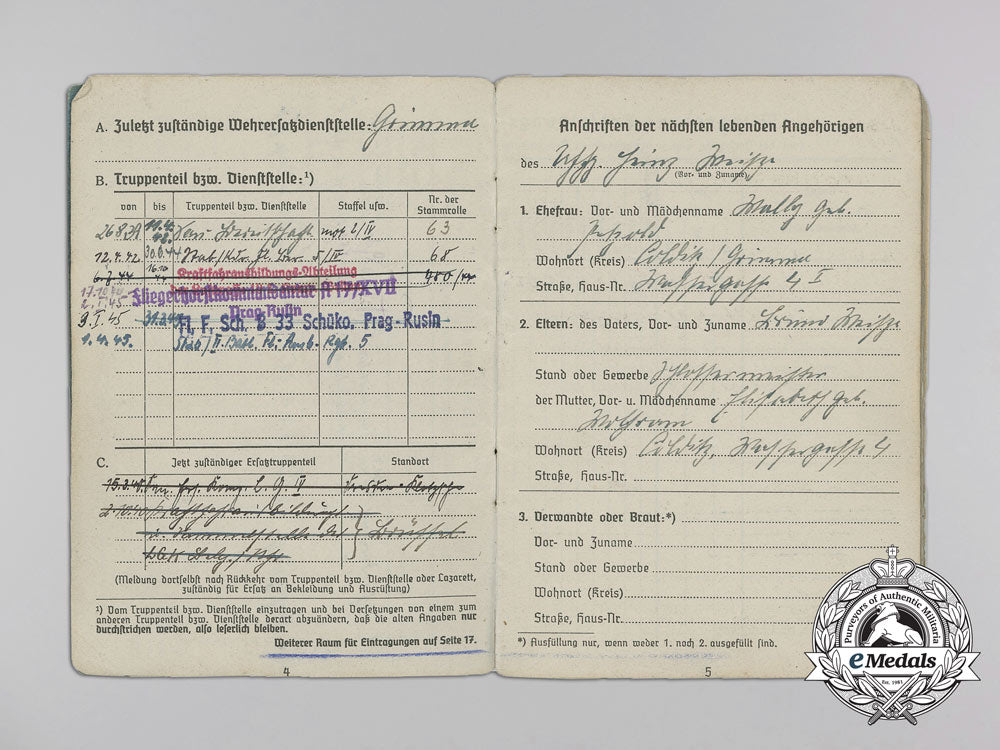 A. Zuletzt zuständige Wehrersatzdienststelle: Grimma
B. Truppenteil bzw. Dienststelle:¹)
von bis Truppenteil bzw. Dienststelle Staffel usw. Nr. der Stammrolle
11.4.42. mot 2/IV 63
12.4.42 30.6.44 /IV 68
6.7.44 16.10.44 Kraftfahrausbildungs-Abteilung 400/44
Fliegerhorstkommandantur A 17/XVII
Prag-Rusin
9.I.45 Fl. F. Sch. B 33 Schüko, Prag-Rusin
1.4.45. Stab/II. Batl. Fl. Ausb. Rgt. 5
C. Jetzt zuständiger Ersatztruppenteil Standort
15.3.40 San. L.G. IV Dresden-Klotzsche
2.10.40
Brüssel
(Meldung dortselbst nach Rückkehr vom Truppenteil bzw. Dienststelle oder Lazarett,
zuständig für Ersatz an Bekleidung und Ausrüstung)
¹) Vom Truppenteil bzw. Dienststelle einzutragen und bei Versetzungen von einem zum
anderen Truppenteil bzw. Dienststelle derart abzuändern, daß die alten Angaben nur
durchstrichen werden, also leserlich bleiben.
Weiterer Raum für Eintragungen auf Seite 17.
4
Anschriften der nächsten lebenden Angehörigen
des Uffz. Heinz Weiße
(Vor- und Zuname)
1. Ehefrau: Vor- und Mädchenname Wally geb.
Petzold
Wohnort (Kreis) Colditz / Grimma
Straße, Haus-Nr. Wassergasse 4 I
2. Eltern: des Vaters, Vor- und Zuname Bruno Weiße
Stand oder Gewerbe Schlossermeister
der Mutter, Vor- u. Mädchenname Elisabeth geb.
Wolfram
Wohnort (Kreis) Colditz, Wassergasse 4
Straße, Haus-Nr.
3. Verwandte oder Braut:*)
Vor- und Zuname
Stand oder Gewerbe
Wohnort (Kreis)
Straße, Haus-Nr.
*) Ausfüllung nur, wenn weder 1. noch 2. ausgefüllt sind.
5
Purveyors of Authentic Militaria
eMedals
Est. 1981